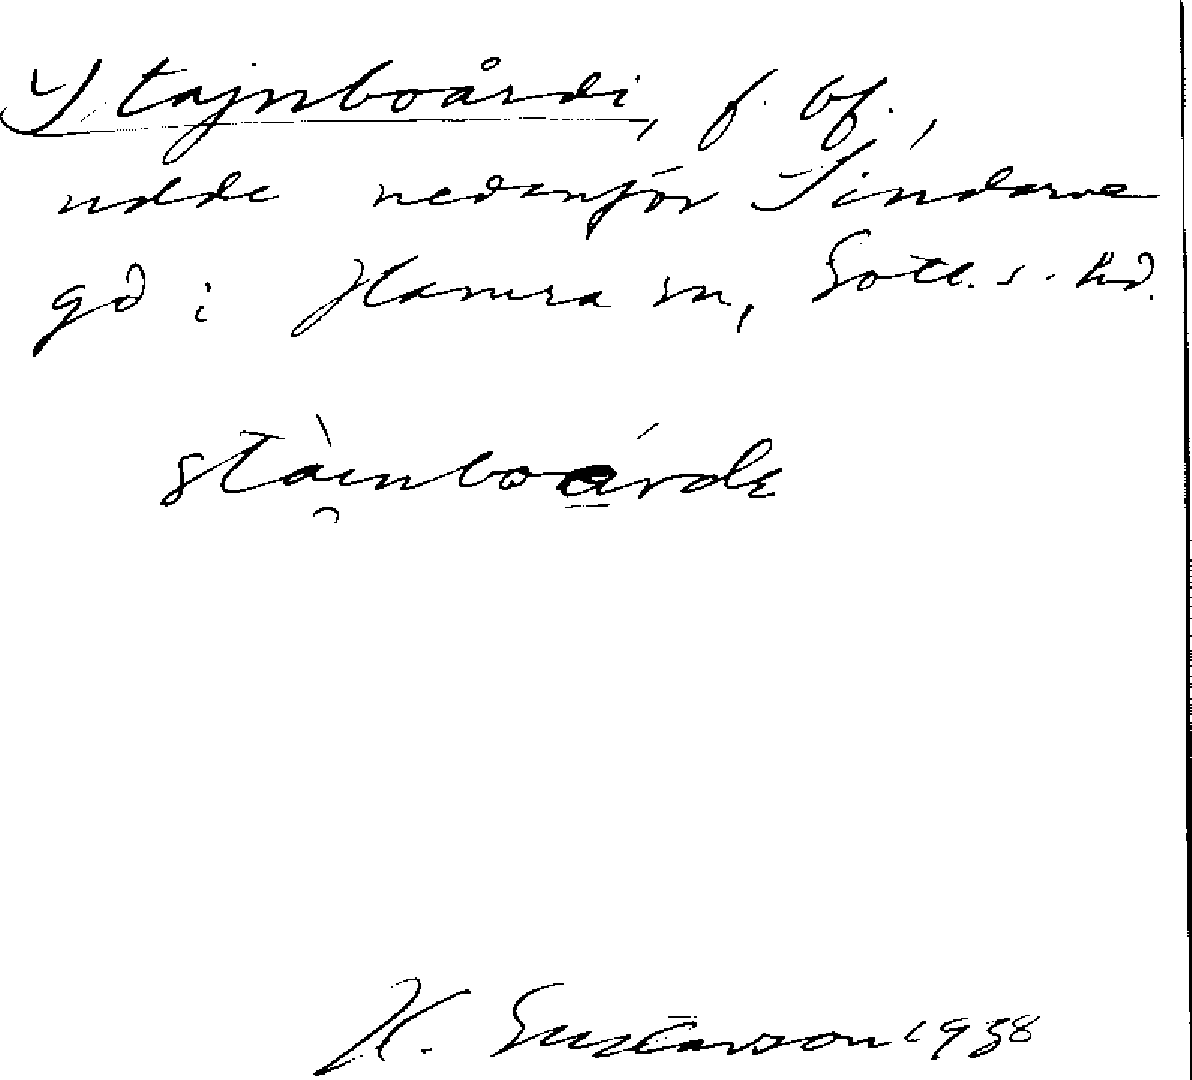 Stajnboårdi, f. bf.,
udde nedanför Sindarve
gd i Hamra sn, Gotl. s. hd.
stàinboárdɩ
H. Gustavson 1938